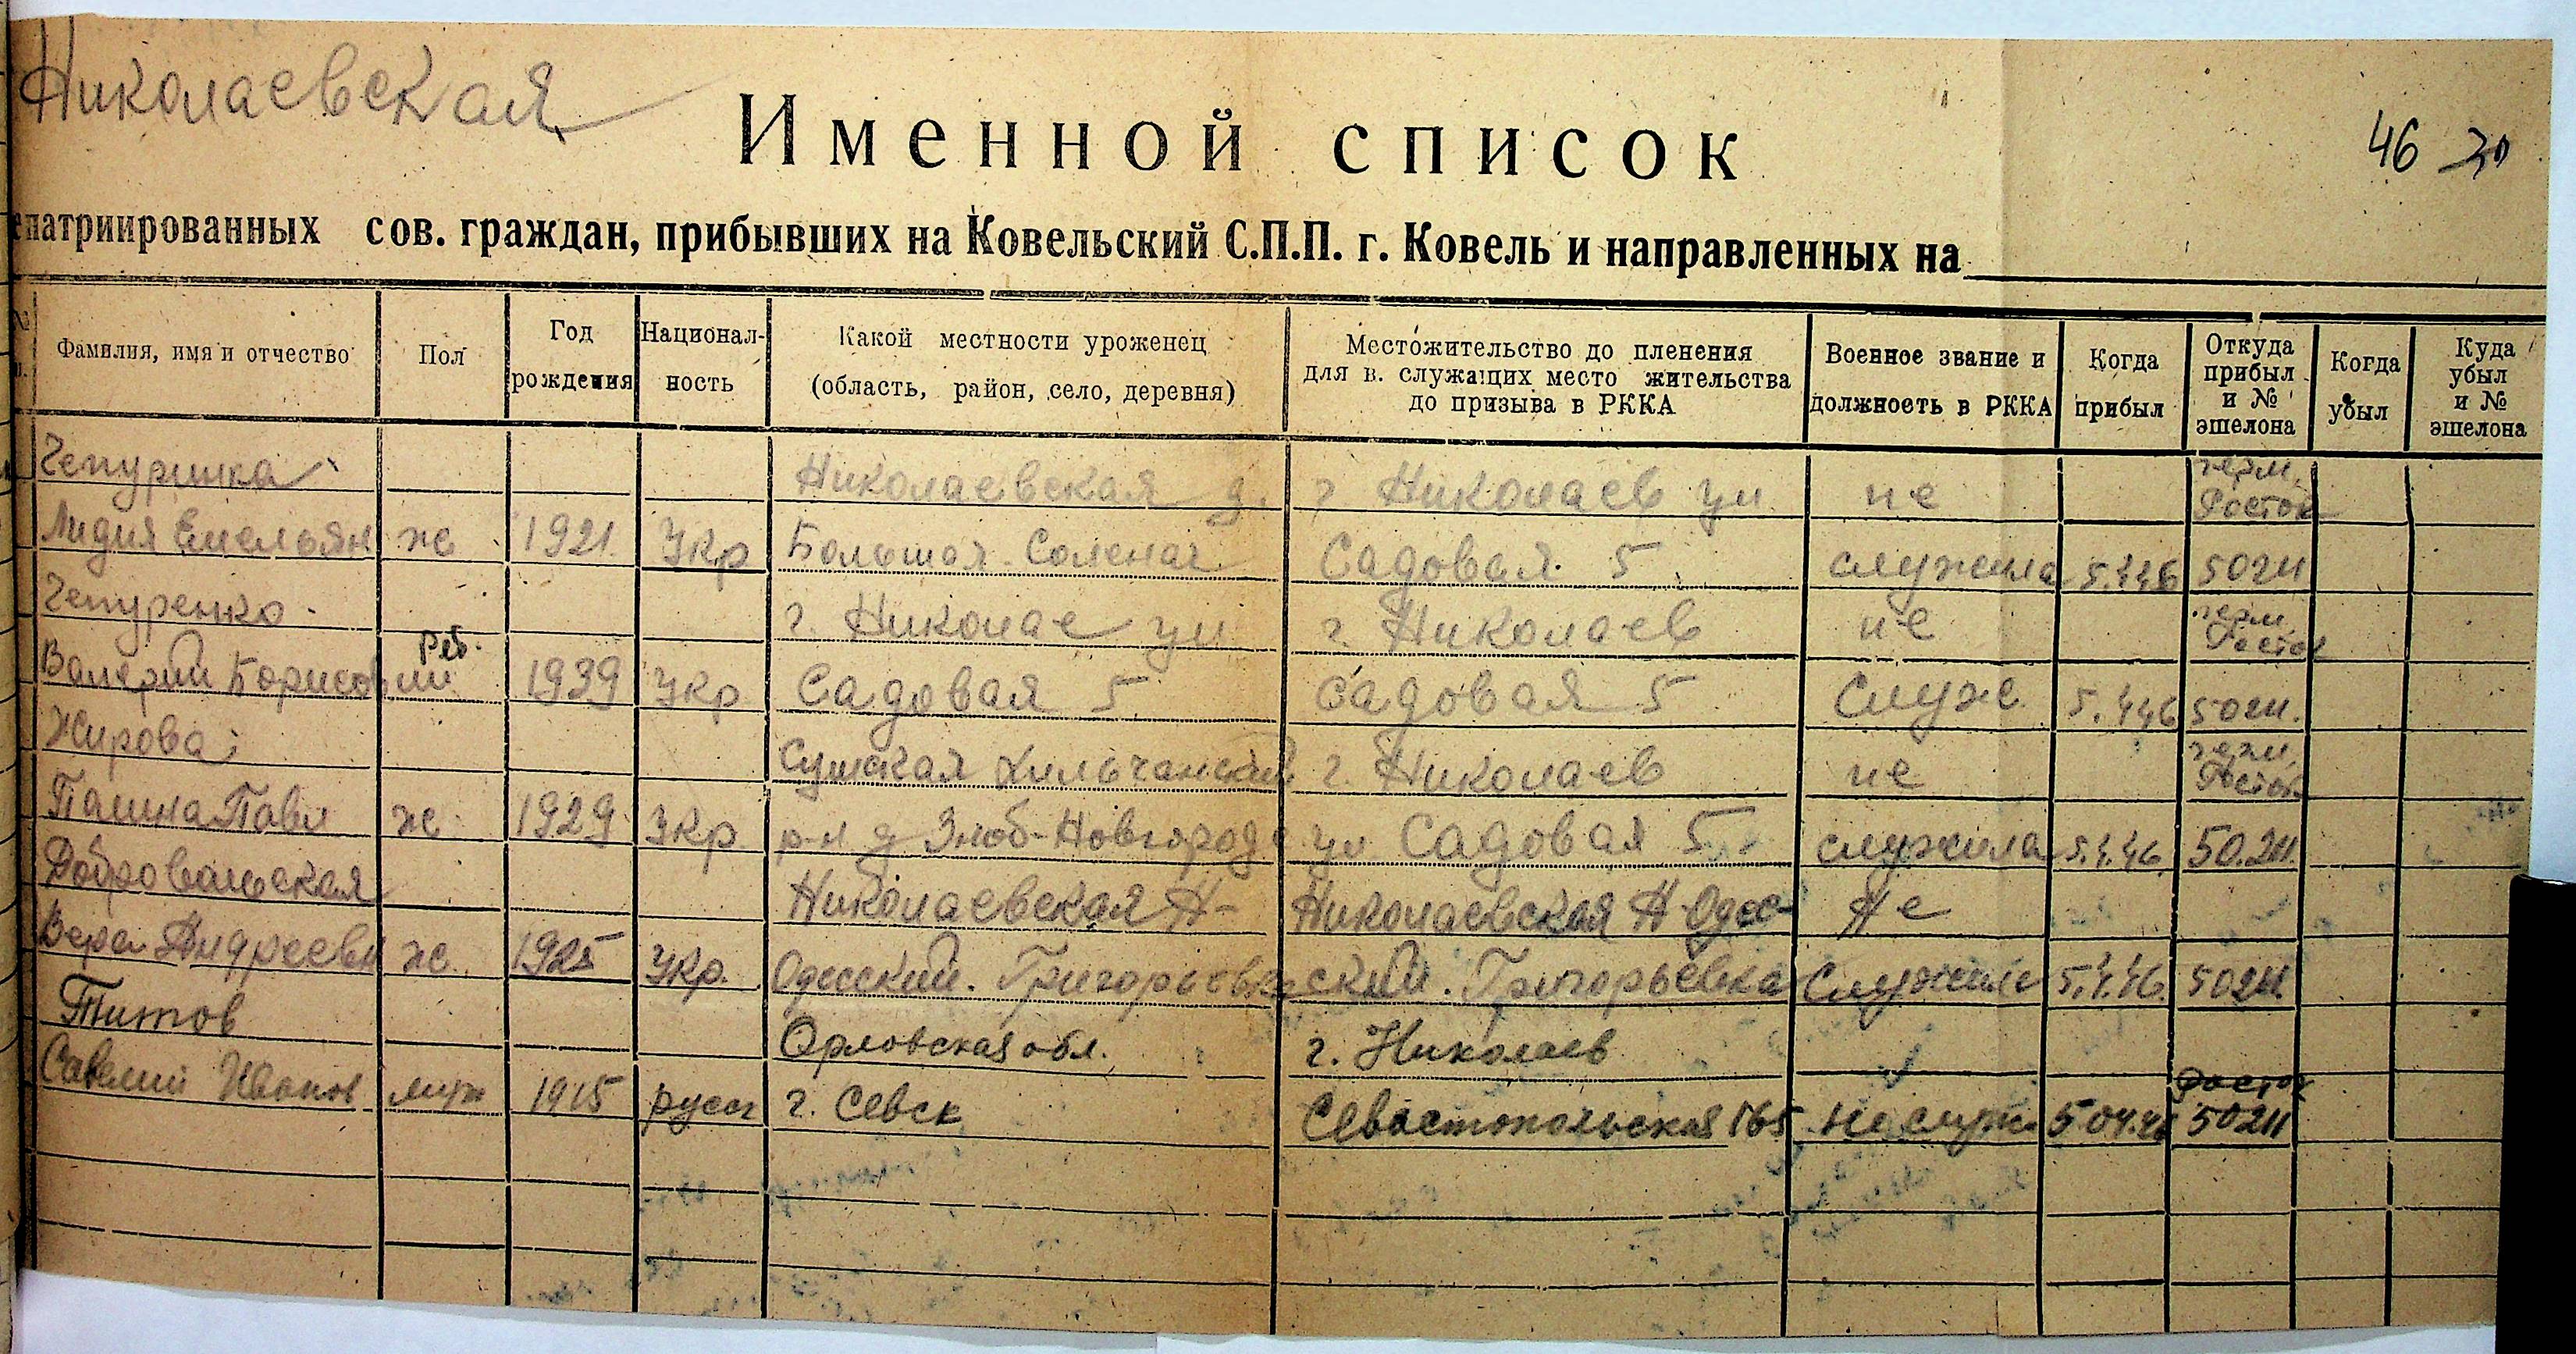 Николаевская
46 30
Именной список
епатриированных сов. граждан, прибывших на Ковельский С.П.П. г. Ковель и направленных на
Фамилия, имя и отчество Пол Год рождения Националь- ность Какой местности уроженец (область, район, село, деревня) Местожительство до пленения для в. служащих место жительства до призыва в РККА Военное звание и должность в РККА Когда прибыл Откуда прибыл и № эшелона Когда убыл Куда убыл и № эшелона
Чепуринка Николаевская д. г Николаев ул не герм. Росток
Лидия Емельян ж 1921 Укр Большая Соленая Садовая 5 служила 5.4.46 50211
Чепуренко г. Николае ул г. Николаев не герм. Росток
Валерий Борисов реб. м 1939 Укр Садовая 5 Садовая 5 служ 5.4.46 50211.
Жирова Сумская Хильчанский г. Николаев не герм. Росток
Полина Павл ж 1929 Укр р-н д Зноб-Новгород ул Садовая 5 служила 5.4.46 50.211.
Добровольская Николаевская Н- Николаевская Н-Одес- Не
Вера Андреевн ж 1925 Укр. Одесский. Григорьевка ский. Григорьевка Служила 5.4.46. 50211.
Титов Орловская обл. г. Николаев Росток
Савелий Иванов муж 1915 русск г. Севск Севастопольская 165 не служ 5 04.46 50211